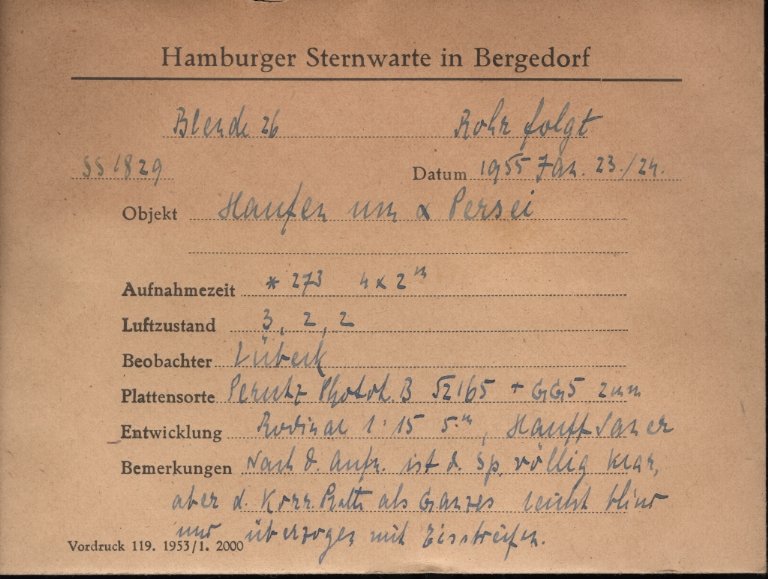 Hamburger Sternwarte in Bergedorf
Blende 26 Rohr folgt
SS 1829 Datum 1955 Jan. 23./24.
Objekt Haufen um α Persei
Aufnahmezeit * 273 4 x 2 m
Luftzustand 3, 2, 2
Beobachter Lübeck
Plattensorte Perutz Phototh. B + GG5 2 mm
Entwicklung Rodinal 1:15 5 m, Hauff Sauer
Bemerkungen Nach d. Aufn. ist d. Sp. völlig klar,
aber d. Korr. Platte als Ganzes leicht blind
und überzogen mit Eisstreifen.
Vordruck 119. 1953/1. 2000